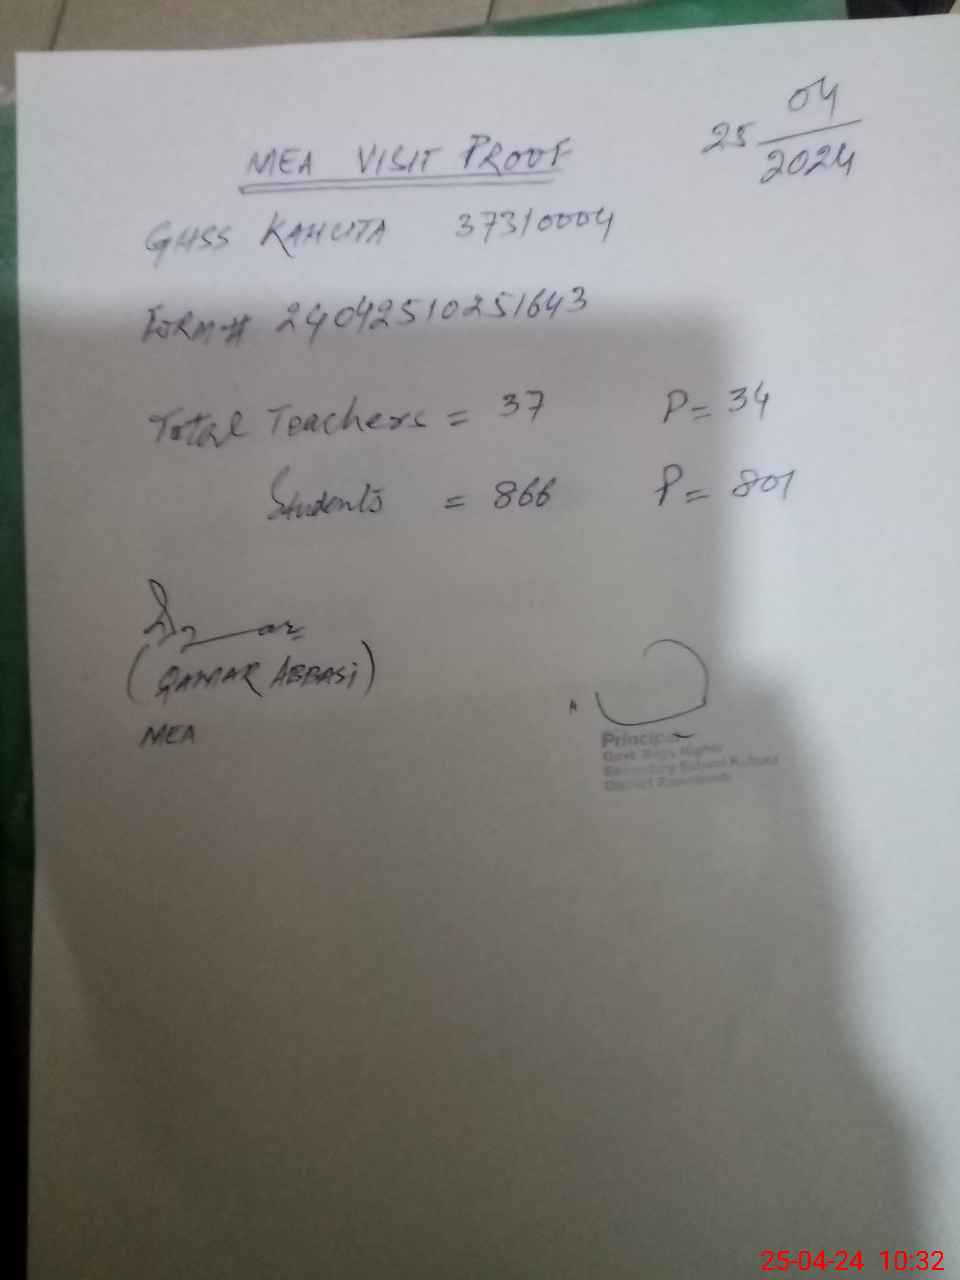 25 04/2024
MEA VISIT PROOF
GHSS KAHUTA 37310004
FORM # 24042510251643
Total Teachers = 37 P = 34
Students = 866 P = 801
(QAMAR ABBASI)
MEA
Principal
Govt. Boys Higher
Secondary School Kahuta
District Rawalpindi
25-04-24 10:32